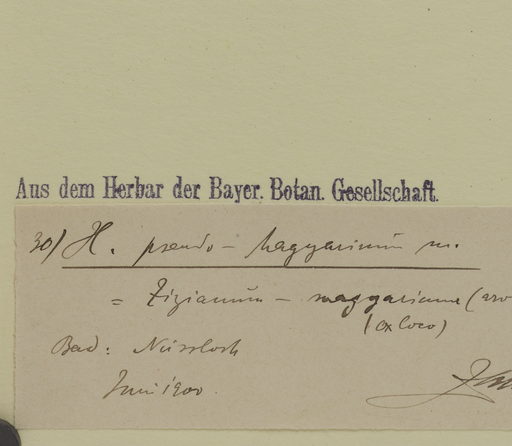 Aus dem Herbar der Bayer. Botan. Gesellschaft.
30) H. pseudo-magyaricum m.
= Zizianum - magyaricum (
(ex loco)
Bad: Nussloch
Juni 1900.